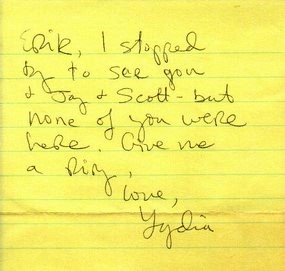 Erik, I stopped
by to see you
& Jay & Scott - but
none of you were
here. Give me
a ring,
Love,
Lydia